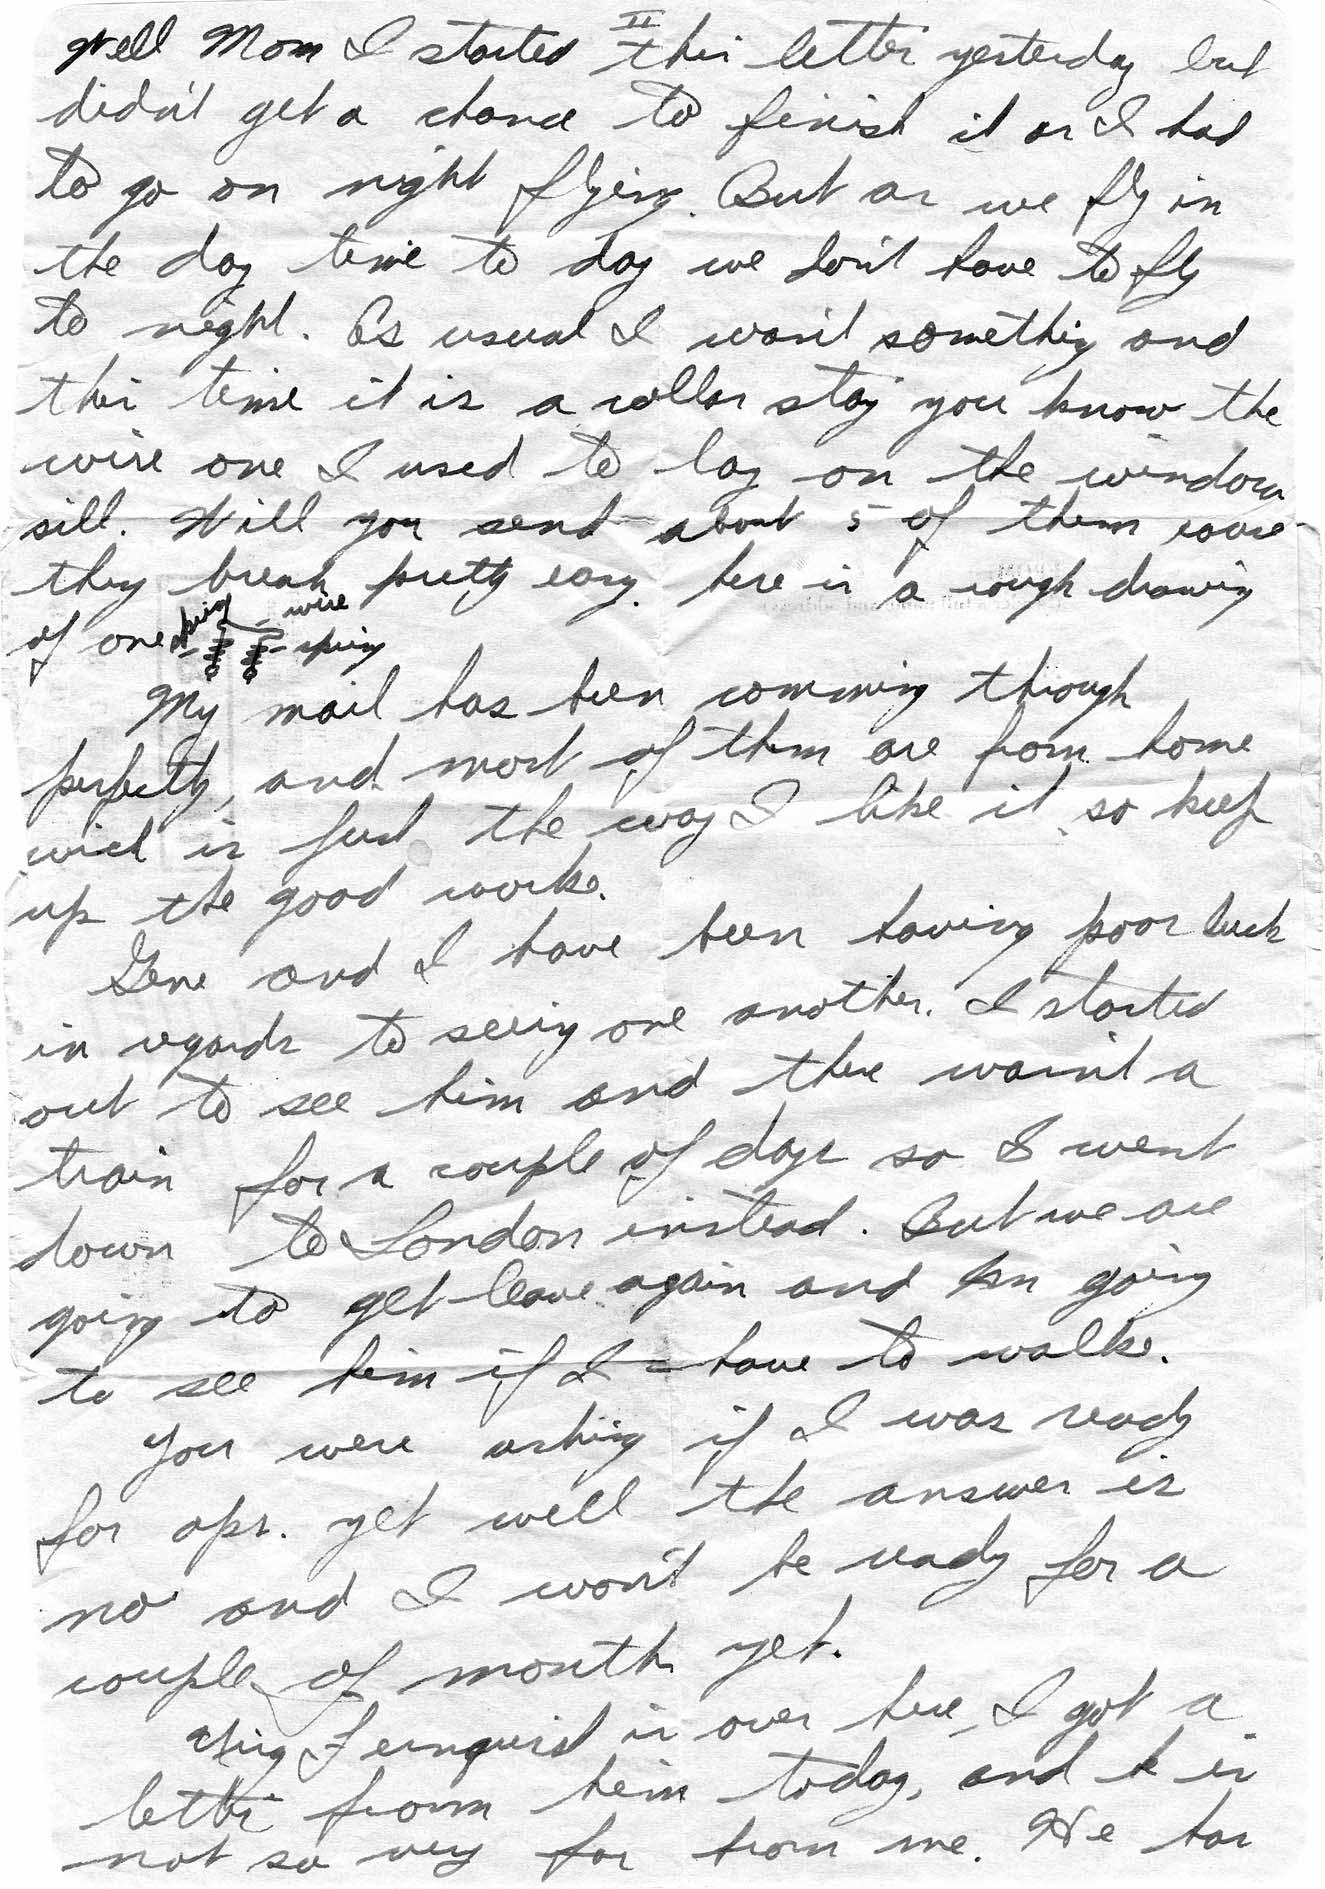 II
Well Mom I started this letter yesterday but
didn't get a chance to finish it as I had
to go on night flying. But as we fly in
the day time to day we don't have to fly
to night. As usual I want something and
this time it is a collar stay you know the
wire one I used to lay on the window
sill. Will you send about 5 of them cause
they break pretty easy. here is a rough drawing
of one spring wire
spring
My mail has been comming through
perfectly, and most of them are from home
wich is just the way I like it so keep
up the good work.
Gene and I have been having poor luck
in regards to seeing one another. I started
out to see him and there wasn't a
train for a couple of days so I went
down to London instead. But we are
going to get leave again and Im going
to see him if I have to walk.
You were asking if I was ready
for ops. yet well the answer is
no and I won't be ready for a
couple of month yet.
is over here, I got a
letter from him today, and h is
not so very far from me. He has